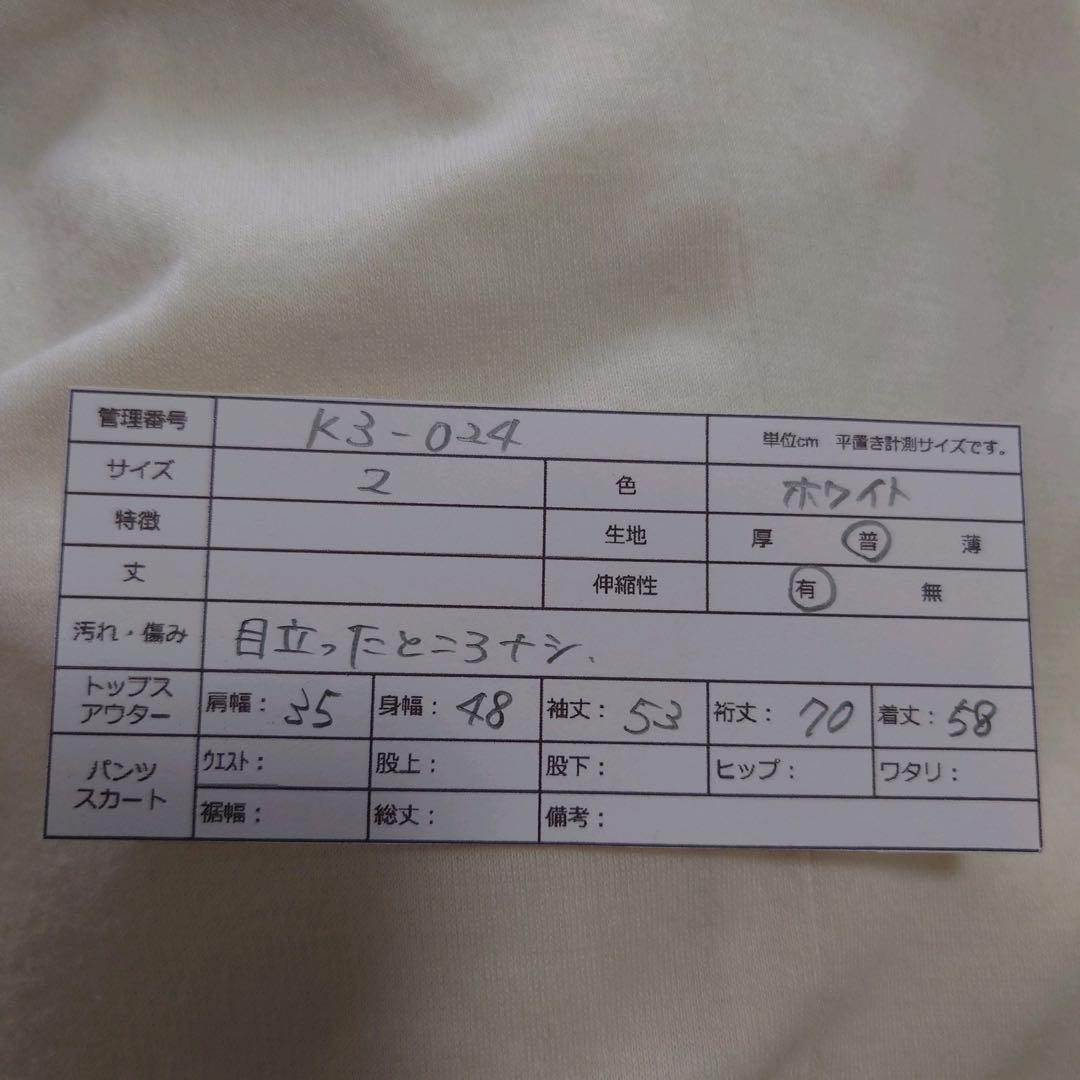 管理番号 K3-024 単位cm 平置き計測サイズです。
サイズ 2 色 ホワイト
特徴 生地 厚 普 薄
丈 伸縮性 有 無
汚れ・傷み 目立ったところナシ、
トップス
アウター 肩幅： 35 身幅： 48 袖丈： 53 裄丈： 70 着丈： 58
パンツ
スカート ウエスト： 股上： 股下： ヒップ： ワタリ：
裾幅： 総丈： 備考：